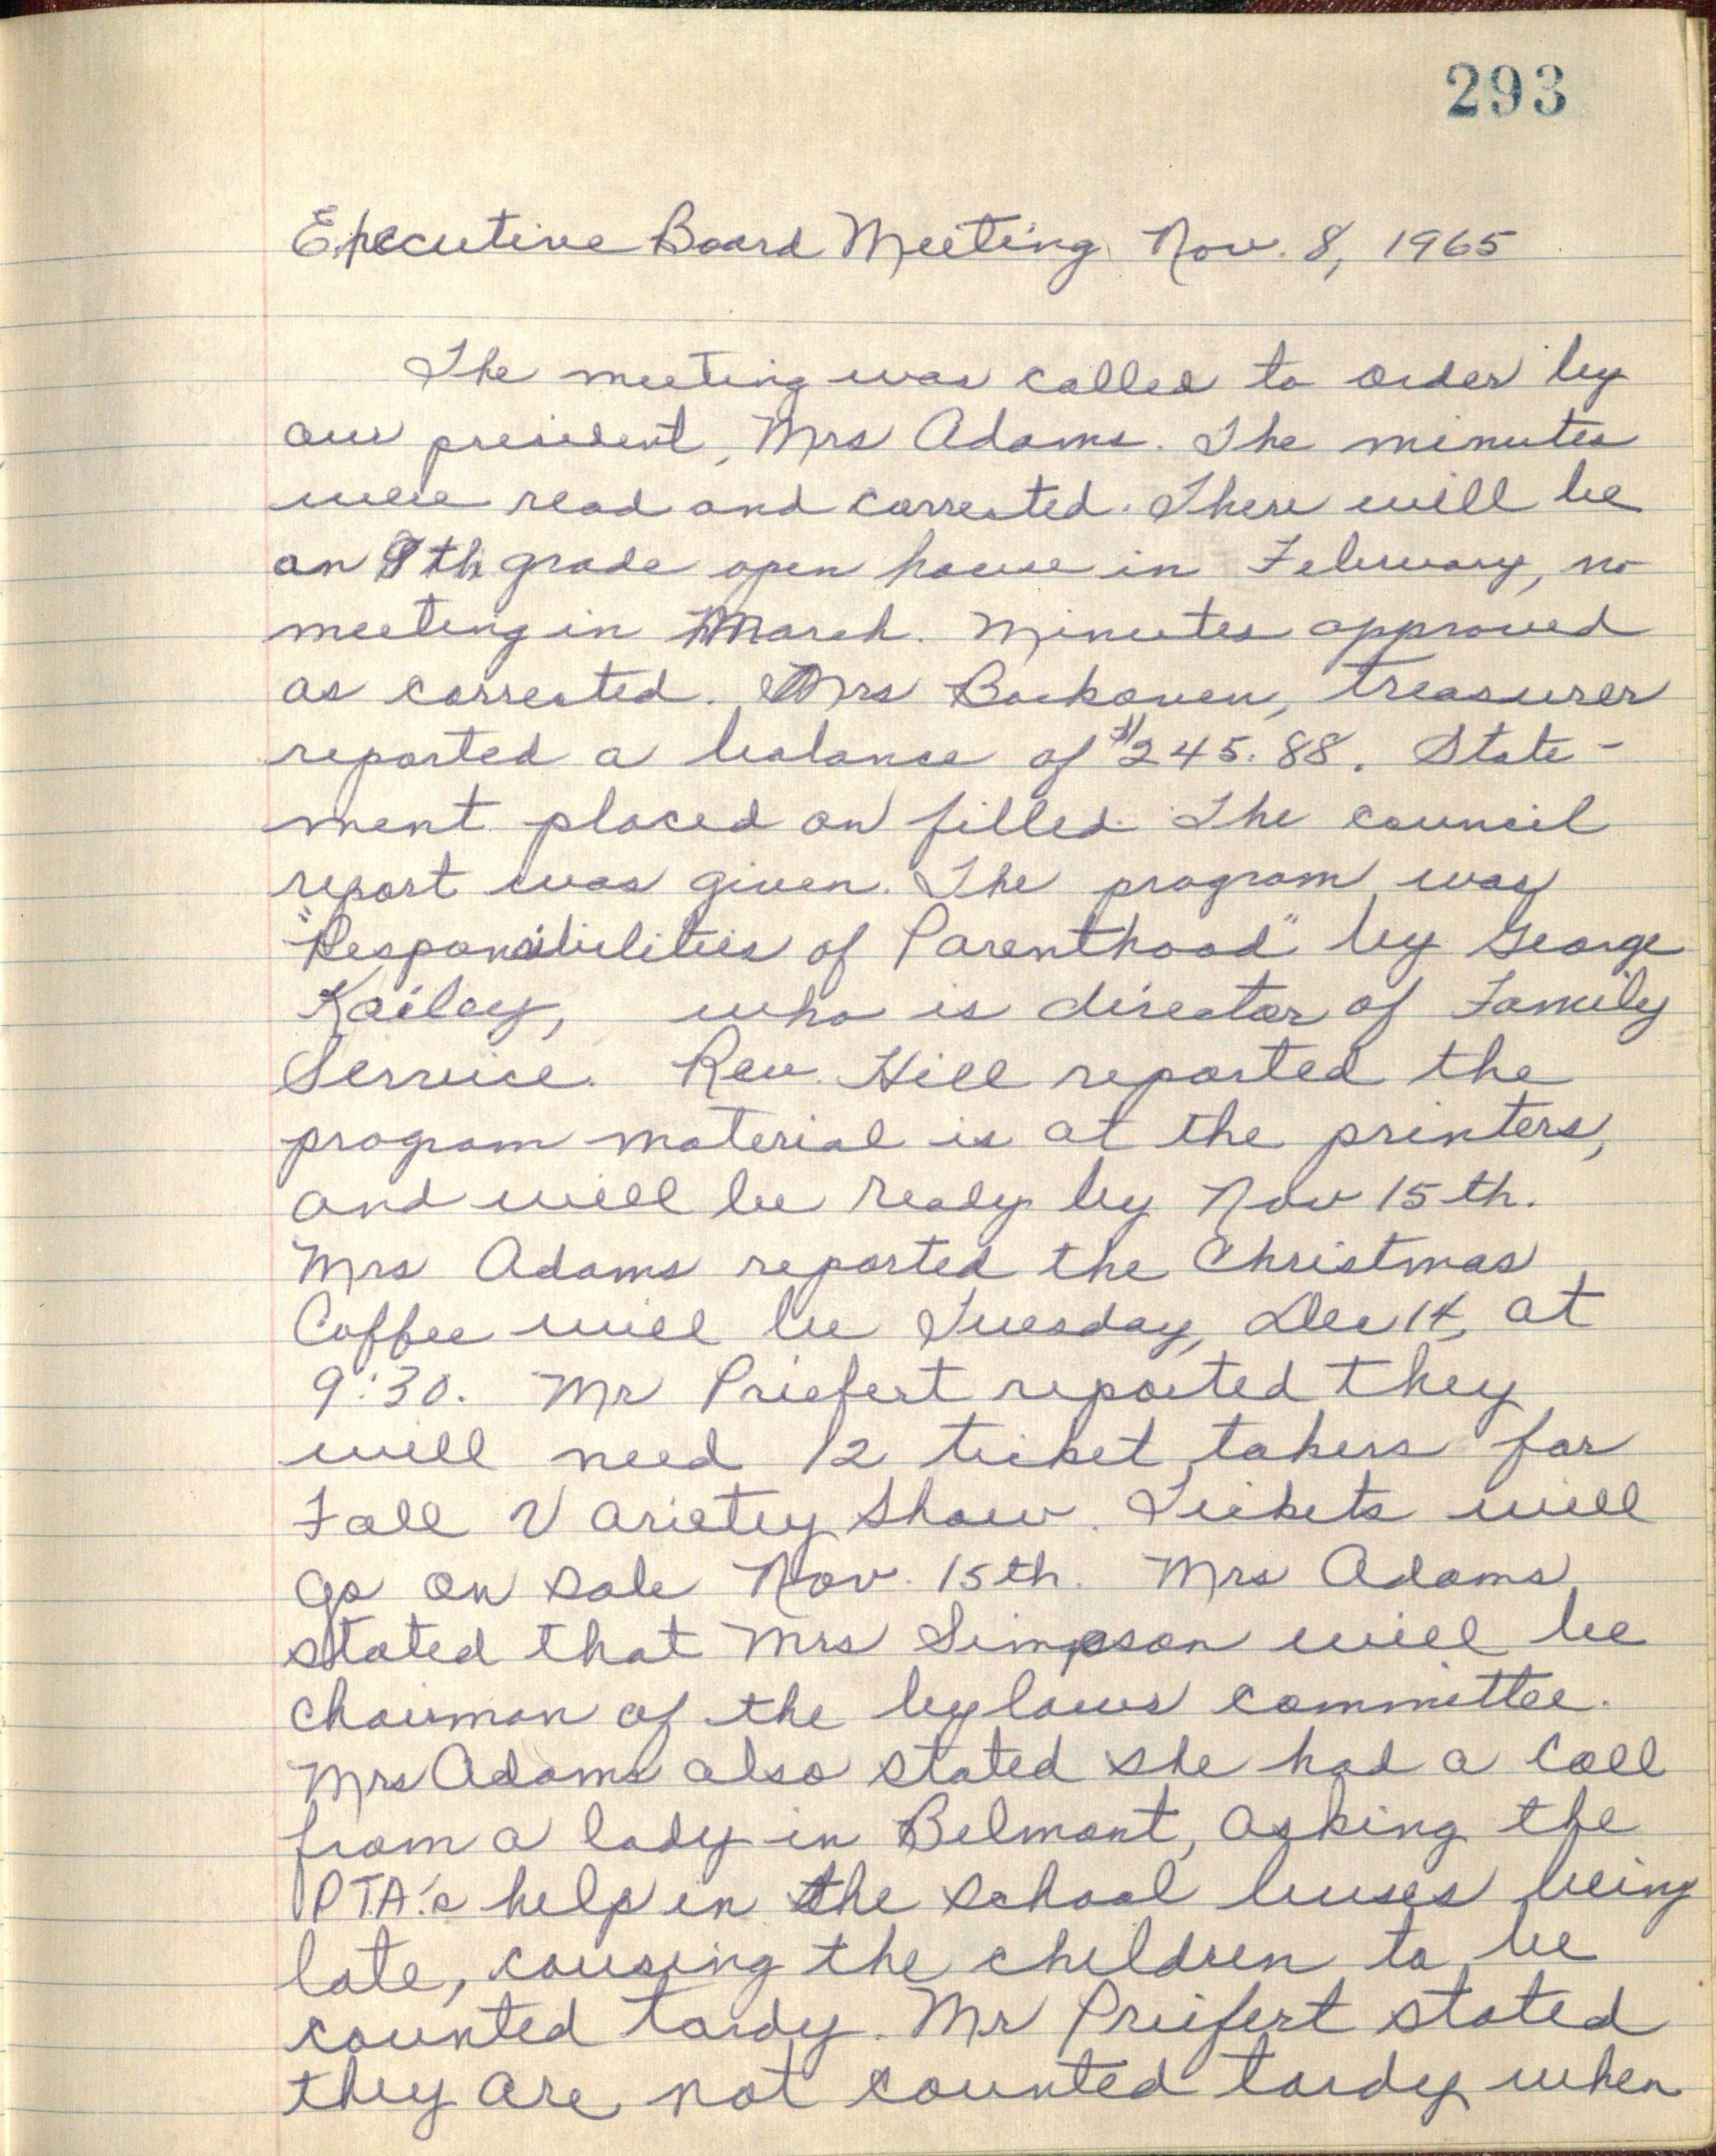 293
Executive Board Meeting Nov. 8, 1965
The meeting was called to order by
our president, Mrs Adams. The minutes
were read and corrected. There will be
an 8th grade open house in February, no
meeting in March. Minutes approved
as corrected. Mrs Backoven, treasurer
reported a balance of $245.88. State-
ment placed on filled. The council
report was given. The program was
"Responsibilities of Parenthood" by George
Kailey, who is director of Family
Service. Rev. Hill reported the
program material is at the printers,
and will be ready by Nov 15th.
Mrs Adams reported the Christmas
Coffee will be Tuesday, Dec 14, at
9:30. Mr Priefert reported they
will need 12 ticket takers for
Fall Variety Show. Tickets will
go on sale Nov. 15th. Mrs Adams
stated that Mrs Simpson will be
chairman of the bylaws committee.
Mrs Adams also stated she had a call
from a lady in Belmont, asking the
PTA's help in the school buses being
late, causing the children to be
counted tardy. Mr Priefert stated
they are not counted tardy when